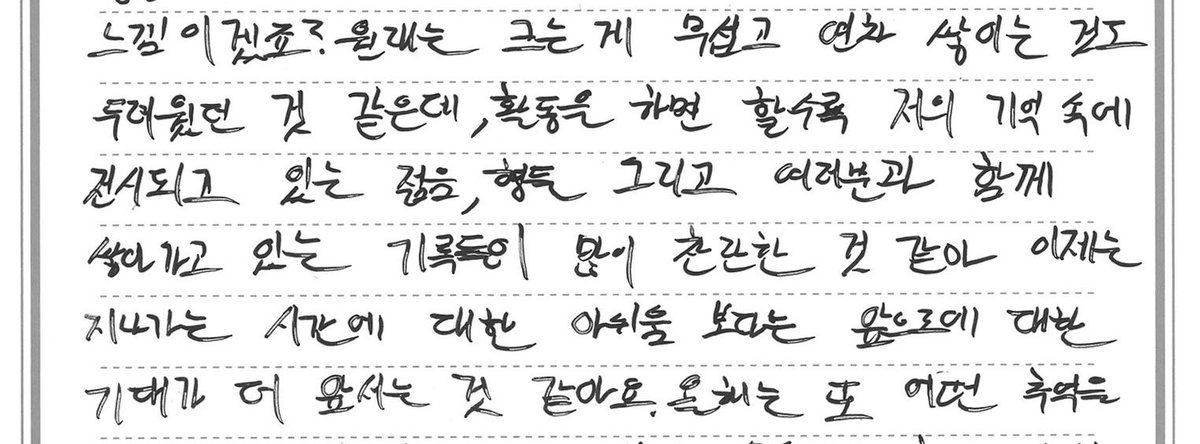 느낌이겠죠? 원래는 크는 게 무섭고 연차 쌓이는 것도
두려웠던 것 같은데, 활동을 하면 할수록 저의 기억 속에
전시되고 있는 젊음, 형들 그리고 여러분과 함께
쌓아가고 있는 기록들이 많이 찬란한 것 같아 이제는
지나가는 시간에 대한 아쉬움 보다는 앞으로에 대한
기대가 더 앞서는 것 같아요. 올해는 또 어떤 추억을